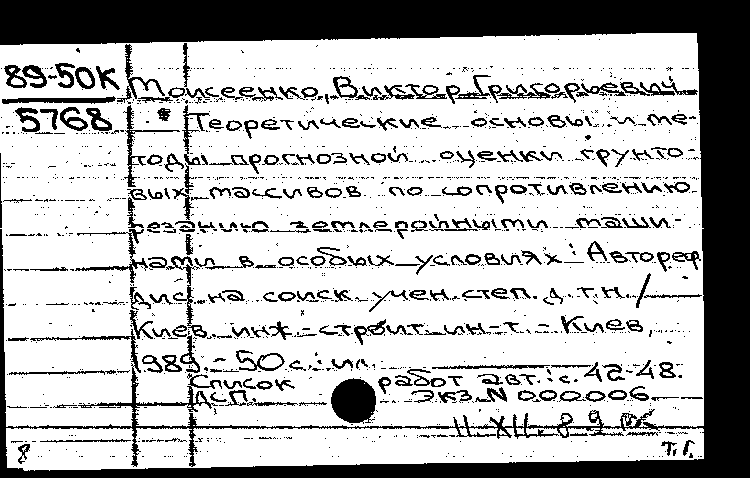 89-50К Моисеенко, Виктор Григорьевич
5768 * Теоретические основы и ме-
тоды прогнозной оценки грунто-
вых массивов по сопротивлению
резанию землеройными маши-
нами в особых условиях: Автореф
дис. на соиск. учен. степ. д.т.н. /
Киев. инж.-строит. ин-т. - Киев,
1989. - 50 с.: ил.
Список работ авт.: с. 42-48.
ДСП. Экз. N 000006.
11.XII.89
8 Т.Г.